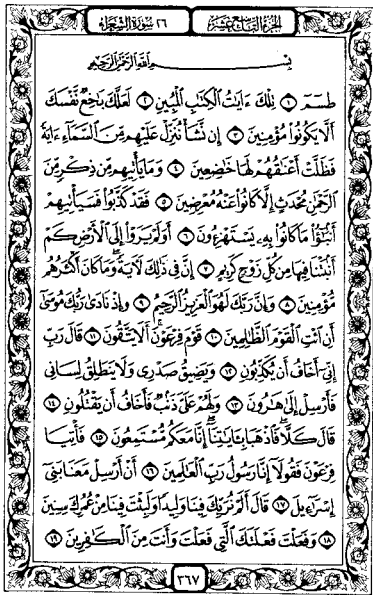 الجزء التاسع عشر ٢٦ سورة الشعراء
بِسْمِ ٱللَّهِ ٱلرَّحْمَٰنِ ٱلرَّحِيمِ
طسٓمٓ ١ تِلْكَ ءَايَٰتُ ٱلْكِتَٰبِ ٱلْمُبِينِ ٢ لَعَلَّكَ بَٰخِعٌ نَّفْسَكَ
أَلَّا يَكُونُوا۟ مُؤْمِنِينَ ٣ إِن نَّشَأْ نُنَزِّلْ عَلَيْهِم مِّنَ ٱلسَّمَآءِ ءَايَةً
فَظَلَّتْ أَعْنَٰقُهُمْ لَهَا خَٰضِعِينَ ٤ وَمَا يَأْتِيهِم مِّن ذِكْرٍ مِّنَ
ٱلرَّحْمَٰنِ مُحْدَثٍ إِلَّا كَانُوا۟ عَنْهُ مُعْرِضِينَ ٥ فَقَدْ كَذَّبُوا۟ فَسَيَأْتِيهِمْ
أَنۢبَٰٓؤُا۟ مَا كَانُوا۟ بِهِۦ يَسْتَهْزِءُونَ ٦ أَوَلَمْ يَرَوْا۟ إِلَى ٱلْأَرْضِ كَمْ
أَنۢبَتْنَا فِيهَا مِن كُلِّ زَوْجٍ كَرِيمٍ ٧ إِنَّ فِى ذَٰلِكَ لَءَايَةً وَمَا كَانَ أَكْثَرُهُم
مُّؤْمِنِينَ ٨ وَإِنَّ رَبَّكَ لَهُوَ ٱلْعَزِيزُ ٱلرَّحِيمُ ٩ وَإِذْ نَادَىٰ رَبُّكَ مُوسَىٰٓ
أَنِ ٱئْتِ ٱلْقَوْمَ ٱلظَّٰلِمِينَ ١٠ قَوْمَ فِرْعَوْنَ أَلَا يَتَّقُونَ ١١ قَالَ رَبِّ
إِنِّىٓ أَخَافُ أَن يُكَذِّبُونِ ١٢ وَيَضِيقُ صَدْرِى وَلَا يَنطَلِقُ لِسَانِى
فَأَرْسِلْ إِلَىٰ هَٰرُونَ ١٣ وَلَهُمْ عَلَىَّ ذَنۢبٌ فَأَخَافُ أَن يَقْتُلُونِ ١٤
قَالَ كَلَّا فَٱذْهَبَا بِـَٔايَٰتِنَآ إِنَّا مَعَكُم مُّسْتَمِعُونَ ١٥ فَأْتِيَا
فِرْعَوْنَ فَقُولَآ إِنَّا رَسُولُ رَبِّ ٱلْعَٰلَمِينَ ١٦ أَنْ أَرْسِلْ مَعَنَا بَنِىٓ
إِسْرَٰٓءِيلَ ١٧ قَالَ أَلَمْ نُرَبِّكَ فِينَا وَلِيدًا وَلَبِثْتَ فِينَا مِنْ عُمُرِكَ سِنِينَ
١٨ وَفَعَلْتَ فَعْلَتَكَ ٱلَّتِى فَعَلْتَ وَأَنتَ مِنَ ٱلْكَٰفِرِينَ ١٩
٣٦٧